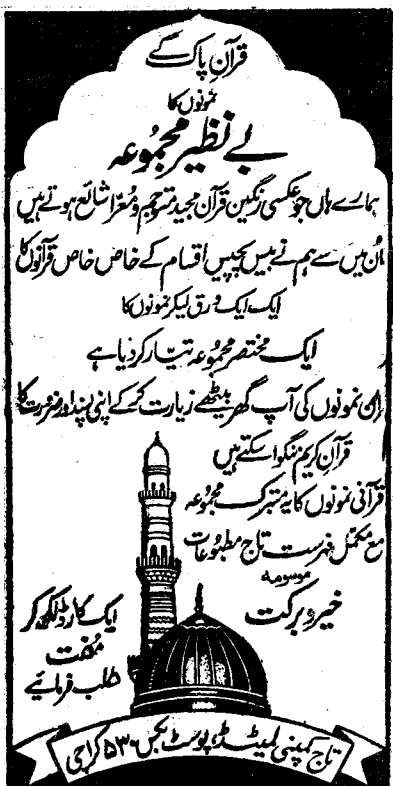 قرآنِ پاک کے
نمونوں کا
بے نظیر مجموعہ
ہمارے ہاں جو عکسی رنگین قرآن مجید مترجم و معرّا شائع ہوتے ہیں
اُن میں سے ہم نے بیس پچیس اقسام کے خاص خاص قرآنوں کا
ایک ایک ورق لیکر نمونوں کا
ایک مختصر مجموعہ تیار کر دیا ہے
اِن نمونوں کی آپ گھر بیٹھے زیارت کر کے اپنی پسند اور ضرورت کا
قرآنِ کریم منگوا سکتے ہیں
قرآنی نمونوں کا یہ متبرک مجموعہ
مع مکمل فہرست تاج مطبوعات
موسومہ
خیر و برکت
ایک کارڈ لکھ کر
مُفت
طلب فرمائیے
تاج کمپنی لمیٹڈ، پوسٹ بکس ۵۳۰ کراچی